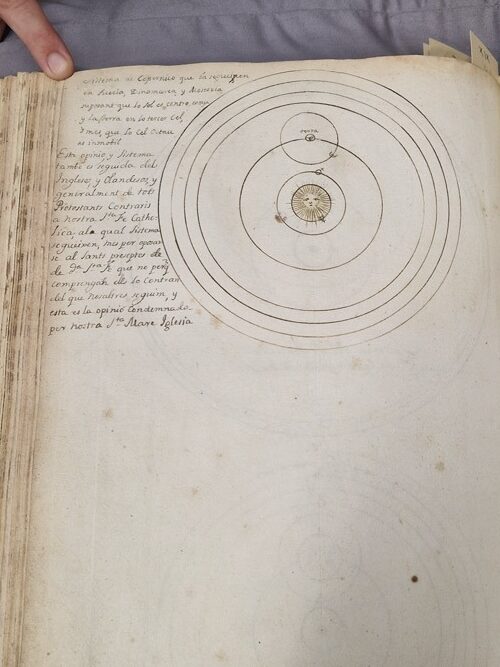 Sistema de Copernico que la segueixen
en Suecia, Dinamarca, y Moscovia
suposant que lo Sol es centro comu
y la terra en lo tercer Cel,
y mes, que lo Cel Octau
es inmobil
Esta opinio y Sistema
tambe es seguida del
Inglesos, y Olandesos, y
generalment de tots
Protestants Contraris
a nostra Sta Fe Catho-
lica, a la qual Sistema
segueixen, mes per oposar
se al Sants preceptes de
da Sta Fe que no perq
comprengan ells lo Contrari
del que nosaltres seguim, y
esta es la opinio Condemnada
per nostra Sta Mare Iglesia
terra
XIX